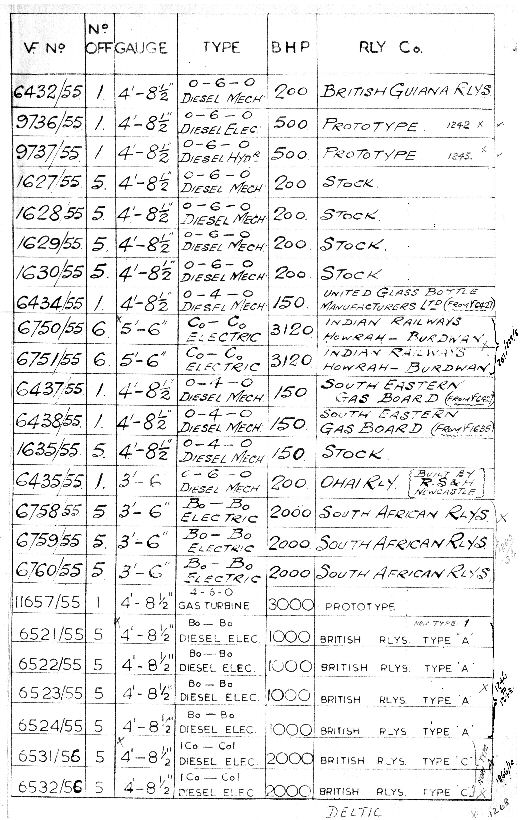 VF Nº Nº OFF GAUGE TYPE B H P RLY Co.
6432/55 1. 4'-8½" 0-6-0 DIESEL MECH 200 BRITISH GUIANA RLYS
9736/55 1. 4'-8½" 0-6-0 DIESEL ELEC 500 PROTOTYPE. 1242 x
9737/55 1. 4'-8½" 0-6-0 DIESEL HYDR 500 PROTOTYPE 1243. x
1627/55 5. 4'-8½" 0-6-0 DIESEL MECH 200 STOCK.
1628/55 5. 4'-8½" 0-6-0 DIESEL MECH 200. STOCK.
1629/55 5. 4'-8½" 0-6-0 DIESEL MECH 200. STOCK.
1630/55 5. 4'-8½" 0-6-0 DIESEL MECH 200 STOCK
6434/55 1. 4'-8½" 0-4-0 DIESEL MECH 150. UNITED GLASS BOTTLE MANUFACTURERS LTD
6750/55 6. x 5'-6" Co-Co ELECTRIC 3120 INDIAN RAILWAYS HOWRAH-BURDWAN
6751/55 6. 5'-6" Co-Co ELECTRIC 3120 INDIAN RAILWAYS HOWRAH-BURDWAN
6437/55 1. 4'-8½" 0-4-0 DIESEL MECH 150 SOUTH EASTERN GAS BOARD
6438/55 1. 4'-8½" 0-4-0 DIESEL MECH 150. SOUTH EASTERN GAS BOARD
1635/55 5. 4'-8½" 0-4-0 DIESEL MECH 150. STOCK.
6435/55 1. 3'-6 0-6-0 DIESEL MECH 200 OHAI RLY. (BUILT BY R S & H NEWCASTLE)
6758/55 5 3'-6" Bo-Bo ELECTRIC 2000 SOUTH AFRICAN RLYS. X
6759/55 5. 3'-6" Bo-Bo ELECTRIC 2000 SOUTH AFRICAN RLYS
6760/55 5 3'-6" Bo-Bo ELECTRIC 2000 SOUTH AFRICAN RLYS
11657/55 1 4'-8½" 4-6-0 GAS TURBINE 3000 PROTOTYPE
NOW TYPE 1
6521/55 5 x 4'-8½" Bo-Bo DIESEL ELEC. 1000 BRITISH RLYS. TYPE 'A'
6522/55 5 4'-8½" Bo-Bo DIESEL ELEC. 1000 BRITISH RLYS. TYPE 'A'
6523/55 5 4'-8½" Bo-Bo DIESEL ELEC. 1000 BRITISH RLYS TYPE 'A' x
6524/55 5 4'-8½" Bo-Bo DIESEL ELEC. 1000 BRITISH RLYS. TYPE 'A'
6531/56 5 x 4'-8½" 1Co-Co1 DIESEL ELEC 2000 BRITISH RLYS. TYPE 'C'
6532/56 5 4'-8½" 1Co-Co1 DIESEL ELEC. 2000 BRITISH RLYS. TYPE 'C' X
DELTIC x 1268